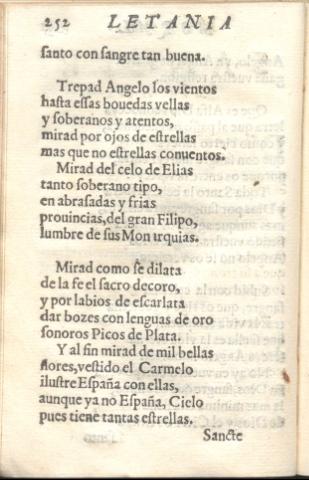 252 LETANIA
santo con sangre tan buena.
Trepad Angelo los vientos
hasta essas bouedas vellas
y soberanos y atentos,
mirad por ojos de estrellas
mas que no estrellas conuentos.
Mirad del celo de Elias
tanto soberano tipo,
en abrasadas y frias
prouincias, del gran Filipo,
lumbre de sus Mon urquias.
Mirad como se dilata
de la fe el sacro decoro,
y por labios de escarlata
dar bozes con lenguas de oro
sonoros Picos de Plata.
Y al fin mirad de mil bellas
flores, vestido el Carmelo
ilustre España con ellas,
aunque ya no España, Cielo
pues tiene tantas estrellas.
Sancte